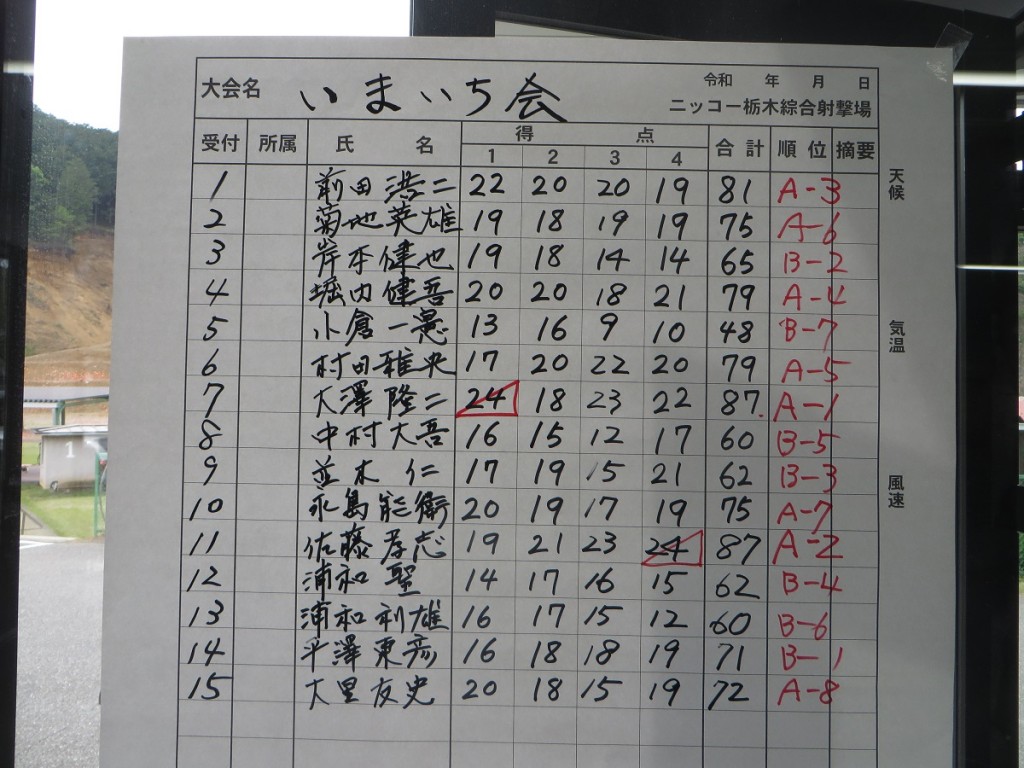 令和 年 月 日
大会名 いまいち会 ニッコー栃木綜合射撃場
受付 所属 氏 名 得 点 合計 順位 摘要
1 2 3 4
1 前田洪二 22 20 20 19 81 A-3
2 菊地英雄 19 18 19 19 75 A-6
3 岸本健也 19 18 14 14 65 B-2
4 堀内健吾 20 20 18 21 79 A-4
5 小倉一憲 13 16 9 10 48 B-7
6 村田雅央 17 20 22 20 79 A-5
7 大澤隆二 24 18 23 22 87 A-1
8 中村大吾 16 15 12 17 60 B-5
9 並木仁 17 19 15 21 62 B-3
10 永島能衛 20 19 17 19 75 A-7
11 佐藤孝志 19 21 23 24 87 A-2
12 浦和聖 14 17 16 15 62 B-4
13 浦和利雄 16 17 15 12 60 B-6
14 平澤東彦 16 18 18 19 71 B-1
15 大里友史 20 18 15 19 72 A-8
天候
気温
風速
1